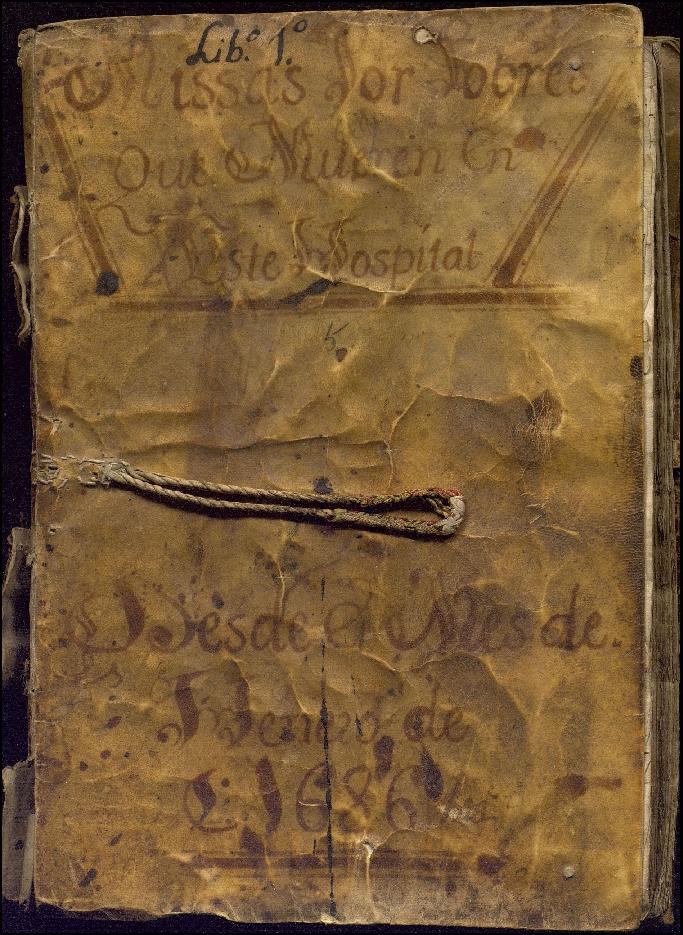 Lib.º 1.º
Missas Por Pobres
Que Mueren En
Este Hospital
5
Desde el Mes de
Henero de
1686